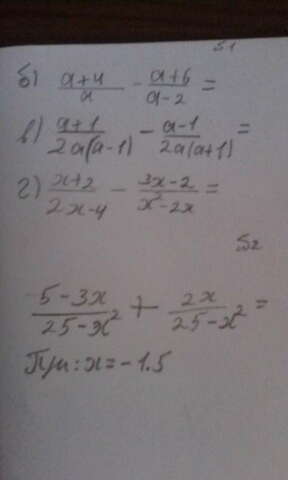 S1
б) (a+4)/a - (a+6)/(a-2) =
в) (a+1)/(2a(a-1)) - (a-1)/(2a(a+1)) =
г) (x+2)/(2x-4) - (3x-2)/(x²-2x) =
S2
(5-3x)/(25-x²) + (2x)/(25-x²) =
При: x=-1.5